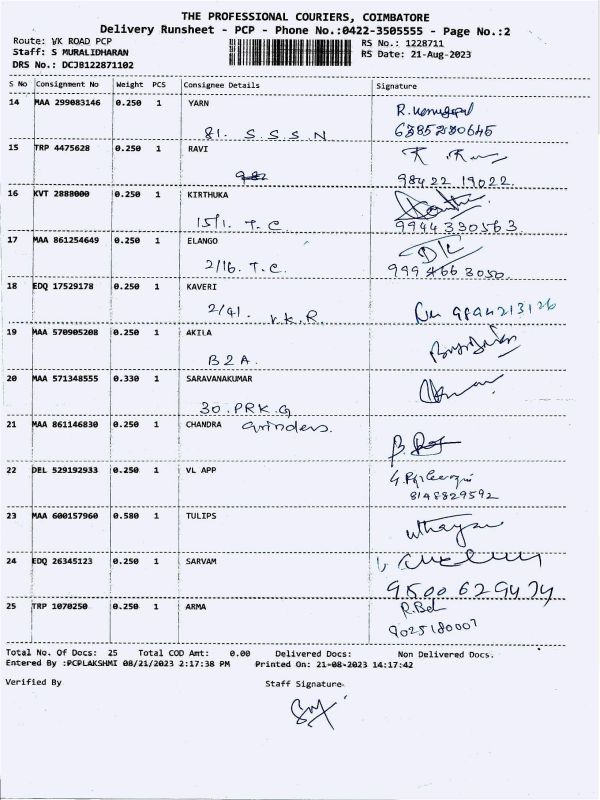 THE PROFESSIONAL COURIERS, COIMBATORE
Delivery Runsheet - PCP - Phone No.:0422-3505555 - Page No.:2
Route: VK ROAD PCP
RS No.: 1228711
Staff: S MURALIDHARAN
RS Date: 21-Aug-2023
DRS No.: DCJB122871102
S No Consignment No Weight PCS Consignee Details Signature
14 MAA 299083146 0.250 1 YARN
81. S.S.S.N
15 TRP 4475628 0.250 1 RAVI
982
98422 19022.
16 KVT 2888000 0.250 1 KIRTHUKA
15/1. T.C. 9944330563
17 MAA 861254649 0.250 1 ELANGO
2/16. T.C.
18 EDQ 17529178 0.250 1 KAVERI
2/41. V.K.R.
19 MAA 570905208 0.250 1 AKILA
B2A.
20 MAA 571348555 0.330 1 SARAVANAKUMAR
30.PRK.G
21 MAA 861146830 0.250 1 CHANDRA Grinders.
22 DEL 529192933 0.250 1 VL APP
8148829592
23 MAA 600157960 0.580 1 TULIPS
24 EDQ 26345123 0.250 1 SARVAM
9500629474
25 TRP 1070250 0.250 1 ARMA
Total No. Of Docs: 25 Total COD Amt: 0.00 Delivered Docs: Non Delivered Docs:
Entered By :PCPLAKSHMI 08/21/2023 2:17:38 PM Printed On: 21-08-2023 14:17:42
Verified By Staff Signature